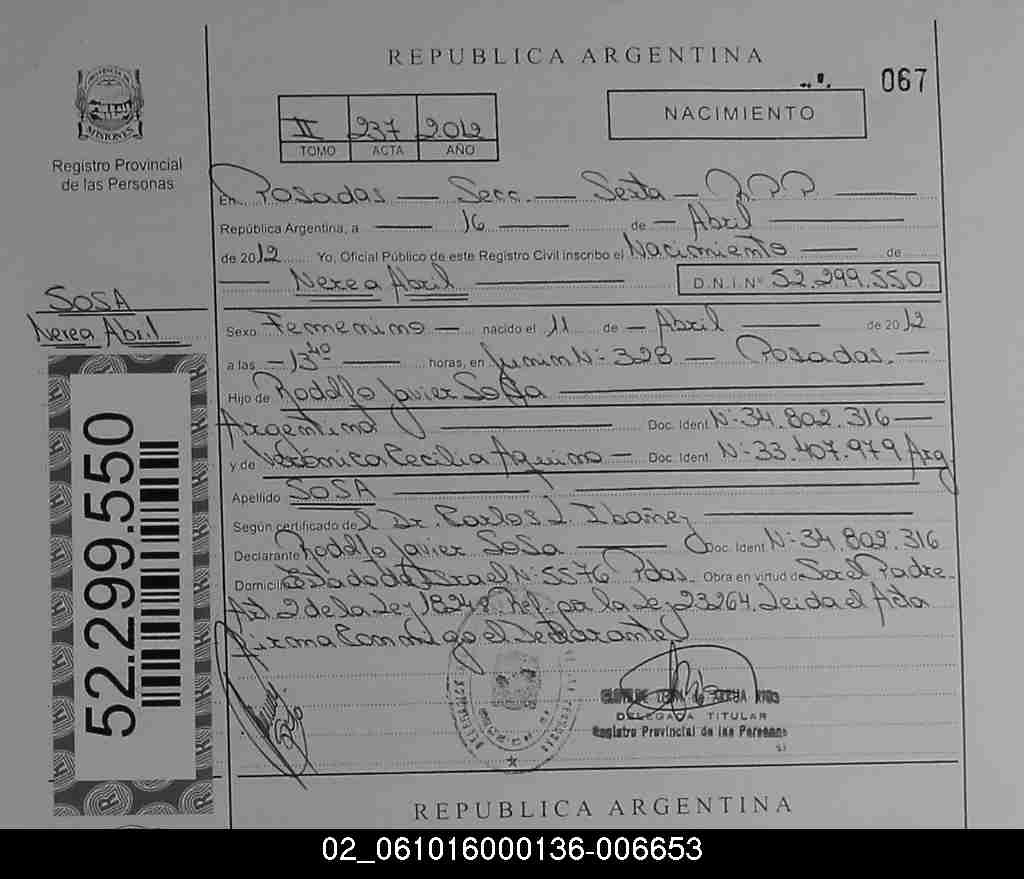 REPUBLICA ARGENTINA
067
NACIMIENTO
II 237 2012
TOMO ACTA AÑO
MISIONES
Registro Provincial
de las Personas
En Posadas — Secc. — Sexta —
República Argentina, a — 16 — de — Abril —
de 2012 Yo, Oficial Público de este Registro Civil inscribo el Nacimiento — de
— Nerea Abril — D.N.I. N° 52.299.550
SOSA
Nerea Abril
Sexo Femenino — nacido el 11 de — Abril — de 2012
a las — 13 40 — horas, en Junin N° 328 — Posadas. —
Hijo de Rodolfo Javier Sosa —
Argentino — Doc. Ident. N° 34.802.316 —
y de Verónica Cecilia Aquino — Doc. Ident. N° 33.407.979 Arg
Apellido SOSA —
Según certificado del Dr. Carlos J. Ibañez —
Declarante Rodolfo Javier Sosa — Doc. Ident. N° 34.802.316
Domicilio Estado de Israel N° 5576 Pdas. Obra en virtud de Ser el Padre
Art. 2 de la Ley 18248 Ref. por la Ley 23264. Leida el Acta
firma Conmigo el Declarante
52.299.550
DELEGADA TITULAR
Registro Provincial de las Personas
REPUBLICA ARGENTINA
02_061016000136-006653